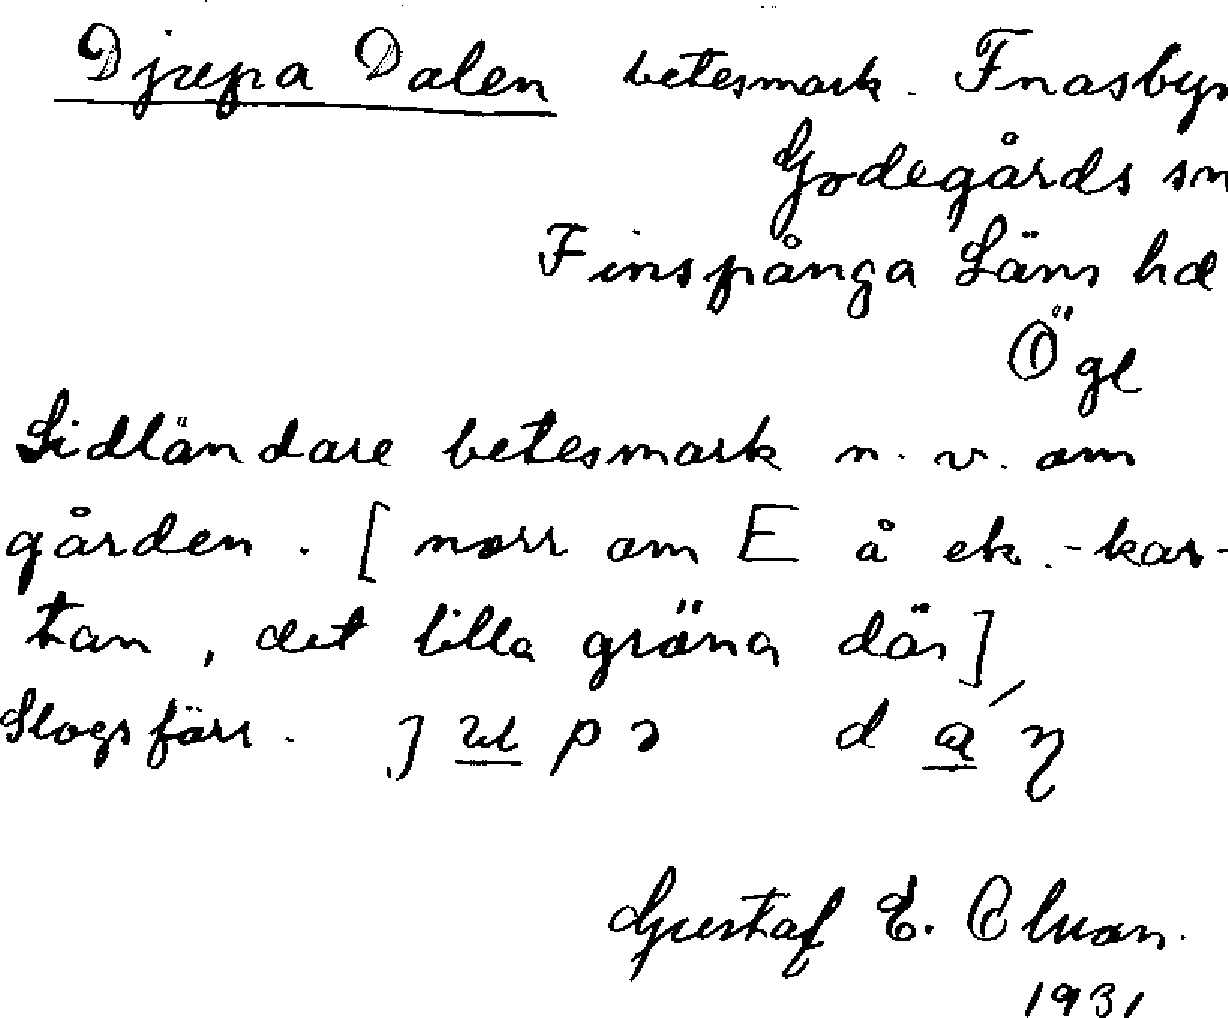 Djupa Dalen betesmark. Fnasbyn
Godegårds sn
Finspånga Läns hd
Ögl
Sidländare betesmark n. v. om
gården. [norr om E å ek.-kar-
tan, det lilla gröna där]
Slogs förr. d
Gustaf E.
1931